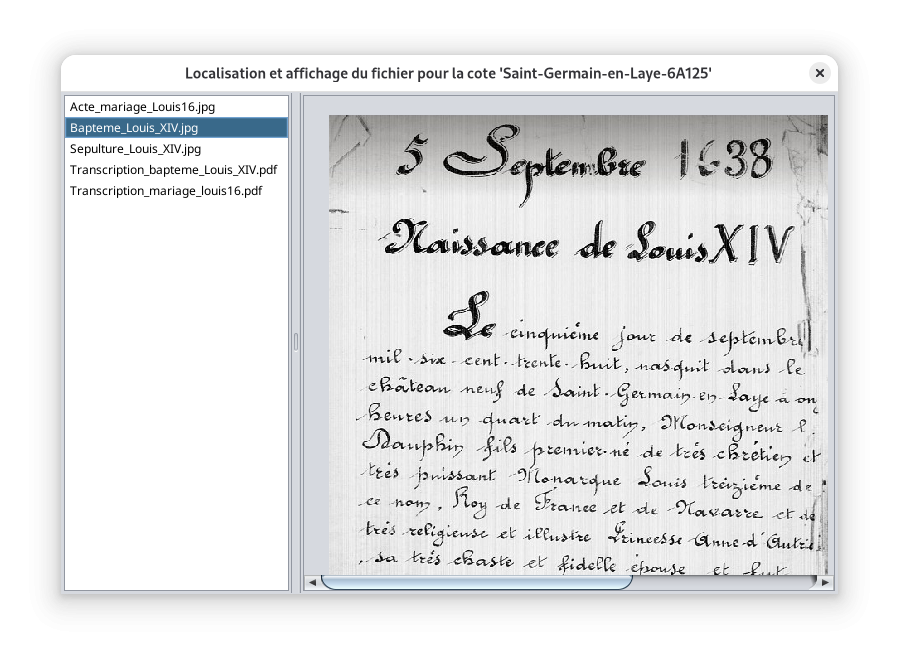 Localisation et affichage du fichier pour la cote 'Saint-Germain-en-Laye-6A125'
Acte_mariage_Louis16.jpg
Bapteme_Louis_XIV.jpg
Sepulture_Louis_XIV.jpg
Transcription_bapteme_Louis_XIV.pdf
Transcription_mariage_louis16.pdf
5 Septembre 1638
Naissance de Louis XIV
Le cinquiéme jour de septembre
mil-six-cent-trente-huit, nasquit dans le
château neuf de Saint-Germain-en-Laye à on
heures un quart du matin, Monseigneur l
Dauphin fils premier-né de trés chrétien et
trés puissant Monarque Louis treiziéme de
ce nom, Roy de France et de Navarre et de
trés religieuse et illustre Princesse Anne d'Autri
, sa trés chaste et fidelle épouse et fut